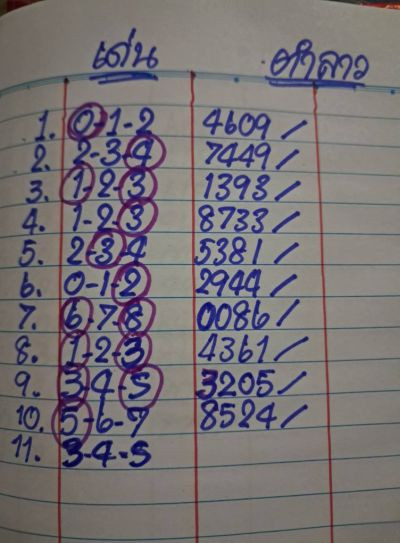 เด่น ตำลาว
1. 0-1-2 4609 /
2. 2-3-4 7449 /
3. 1-2-3 1393 /
4. 1-2-3 8733 /
5. 2-3-4 5381 /
6. 0-1-2 2944 /
7. 6-7-8 0086 /
8. 1-2-3 4361 /
9. 3-4-5 3205 /
10. 5-6-7 8524 /
11. 3-4-5